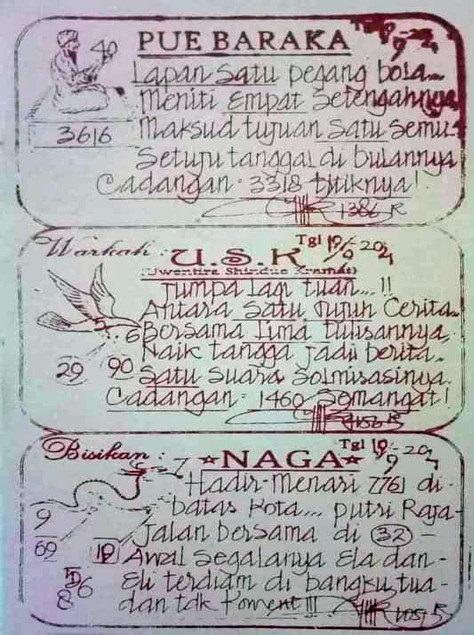 PUE BARAKA
40
Lapan Satu pegang bola...
Meniti Empat Setengahnya
3616
Maksud tujuan Satu Semu..
Setuju tanggal di bulannya
Cadangan : 3318 titiknya!
1386
Warkah : U.S.K
Tgl 10/9-202
Jumpa lagi tuan...!!
Antara Satu Tujuh Cerita..
6 Bersama Lima tulisannya.
Naik tangga jadi berita..
29 90
Satu Suara Solmisasinya.
Cadangan : 1460 Semangat!
Bisikan : NAGA
Tgl 10/9-202
7
Hadir-Menari 2761 di-
batas Kota... putri Raja-
9
Jalan bersama di 32 -
69
Awal Segalanya Ela dan-
Eli terdiam di bangku tua-
8
dan tdk Koment!!!